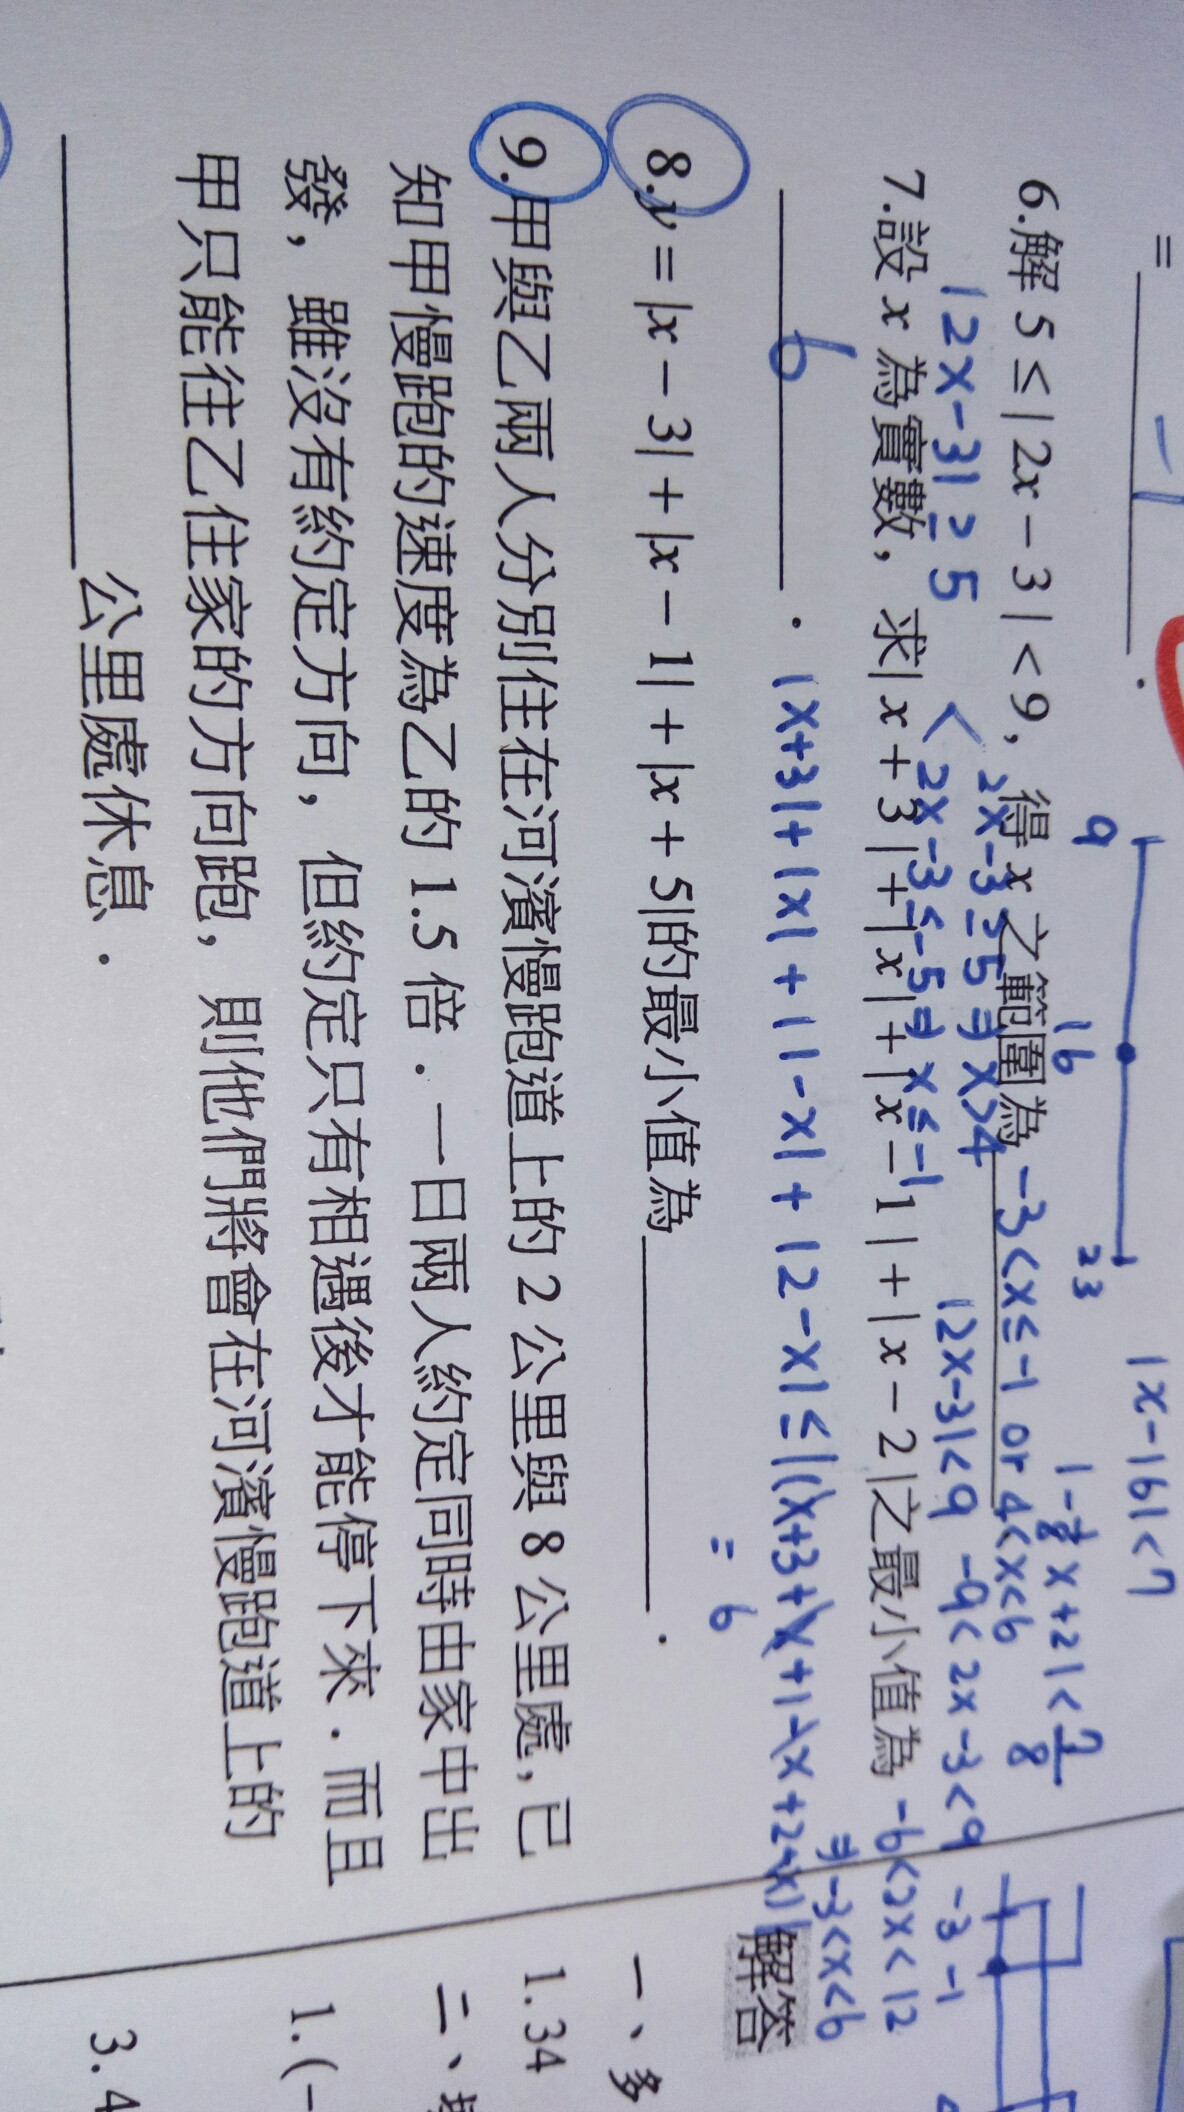 = -1 .
9 16 23 |x-16|<7
6.解 5 ≤ | 2x − 3 | < 9，得 x 之範圍為 -3<x≤-1 or 4<x<6
|2x-3|≥5 < 2x-3≥5 ⇒ x>4 |2x-3|<9 -9<2x-3<9 -3 -1
2x-3≤-5 ⇒ x≤-1
7.設 x 為實數，求| x + 3 | + | x | + | x − 1 | + | x − 2 |之最小值為 -6<2x<12
⇒ -3<x<6
6 . |x+3|+|x|+|1-x|+|2-x|≤|(x+3+x+1-x+2-x)|
= 6
8.y = |x − 3| + |x − 1| + |x + 5|的最小值為 .
9.甲與乙兩人分別住在河濱慢跑道上的 2 公里與 8 公里處，已
知甲慢跑的速度為乙的 1.5 倍．一日兩人約定同時由家中出
發，雖沒有約定方向，但約定只有相遇後才能停下來．而且
甲只能往乙住家的方向跑，則他們將會在河濱慢跑道上的
公里處休息．
解答
一、多
1.34
二、
1.(−
3.4